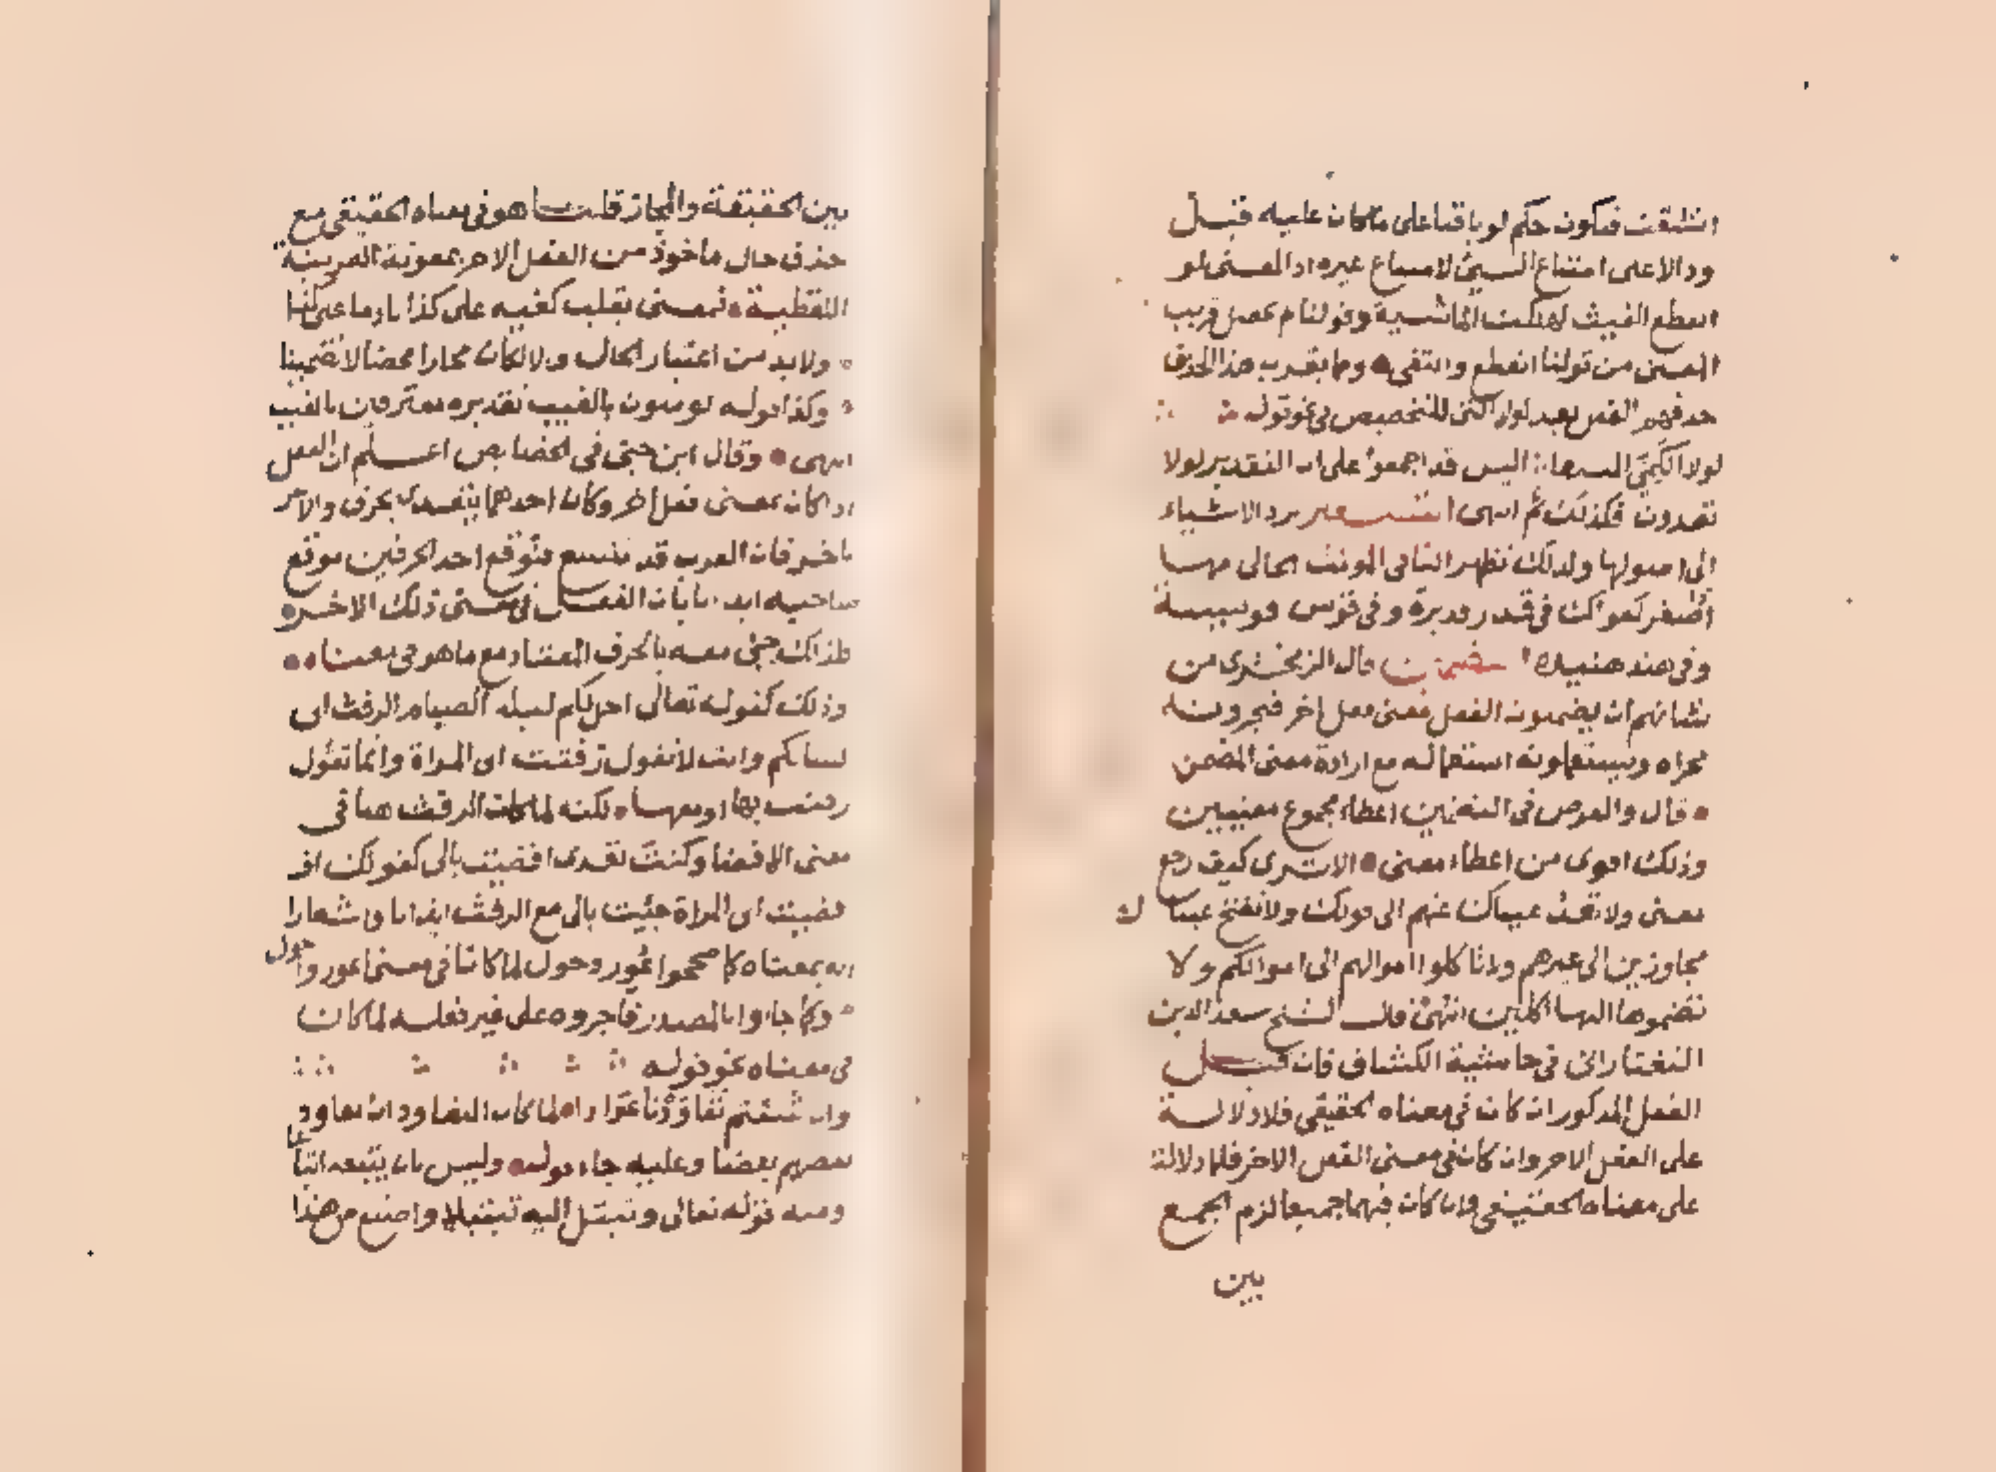 انشلقت فيكون حكم لو باقيا على ما كان عليه قبل
ود الا على امتناع الشيئ لامتناع غيره اذ المعنى لو
انقطع الغيث لهلكت الماشية وقولنا لم يحصل قريب
المعين من قولنا انقطع وانتفى وما يقرب هذا الحذف
حذفهم الفعل بعد لولا التى للتخصيص فى نحو قوله
لولا الكمي اليس قد اجمعوا على ان التقدير لولا
تعدون فكذلك ثم انتهى برد الاشياء
الى اصولها ولذلك تظهر التا فى المونث الخالى منها
اصغر كقولك فى قدر قديرة وفى قوس قويسة
وفى هند هنيدة تضمين قال الزمخشرى من
شانهم ان يضمنون الفعل معنى فعل اخر فيجرونه
مجراه ويستعملونه استعماله مع ارادة معنى المضمن
قال والغرض فى التضمين اعطاء مجموع معنيين
وذلك اقوى من اعطاء معنى الا ترى كيف رجع
معنى ولا تعد عيناك عنهم الى قولك ولا تقتحم عيناك
مجاوزين الى غيرهم ولا تاكلوا اموالهم الى اموالكم ولا
تضموها اليها اكلين انتهى قال الشيخ سعد الدين
التفتازانى فى حاشية الكشاف فان قيل
الفعل المذكور ان كان فى معناه الحقيقى فلا دلالة
على الفعل الاخر وان كان فى معنى الفعل الاخر فلا دلالة
على معناه الحقيقى وان كان فيهما جميعا لزم الجمع
بين
بين الحقيقة والمجاز قلت هو فى معناه الحقيقى مع
حذف حال ماخوذ من الفعل الاخر بمعونة القرينة
اللفظية فمعنى يقلب كفيه على كذا نادما على كذا
ولا بد من اعتبار الحال والا لكان مجازا محضا لا تضمينا
وكذا قوله يومنون بالغيب تقديره معترفين بالغيب
انتهى وقال ابن جنى فى الخصايص اعلم ان الفعل
اذا كان بمعنى فعل اخر وكان احدهما يتعدى بحرف والاخر
باخر فان العرب قد تتسع فتوقع احد الحرفين موقع
صاحبه ايذانا بان الفعل فى معنى ذلك الاخر
فلذلك جيئ معه بالحرف المعتاد مع ما هو فى معناه
وذلك كقوله تعالى احل لكم ليلة الصيام الرفث الى
نسائكم وانت لا تقول رفثت الى المراة وانما تقول
رفثت بها او معها لكنه لما كان الرفث هنا فى
معنى الافضا وكنت تعدى افضيت بالى كقولك اف
ضيت الى المراة جئت بالى مع الرفث ايذانا واشعارا
انه بمعناه كما صححوا عور وحول لما كانا فى معنى اعور واحول
وكما جاءوا بالمصدر فاجروه على غير فعله لما كان
فى معناه نحو قوله
وان شئتم تعاودنا عوادا لما كان التعاود ان يعاود
بعضهم بعضا وعليه جاء قوله وليس بان يتبعه اتباعا
ومنه قوله تعالى وتبتل اليه تبتيلا واصنع من هذا